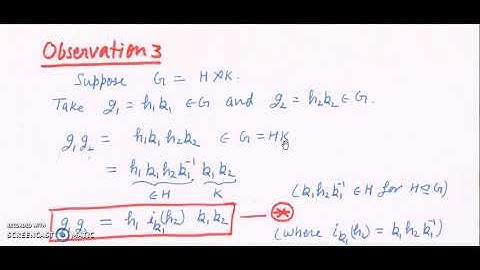 Observation 3
Suppose G = H⋊K.
Take g₁ = h₁k₁ ∈G and g₂ = h₂k₂∈G.
g₁g₂ = h₁k₁h₂k₂ ∈ G=HK
= h₁k₁h₂k₁⁻¹ k₁k₂
∈H K
(k₁h₂k₁⁻¹ ∈ H for H⊴G)
g₁g₂ = h₁ i_k₁(h₂) k₁k₂ — ⊛
(where i_k₁(h₂) = k₁h₂k₁⁻¹)
RECORDED WITH
SCREENCAST MATIC